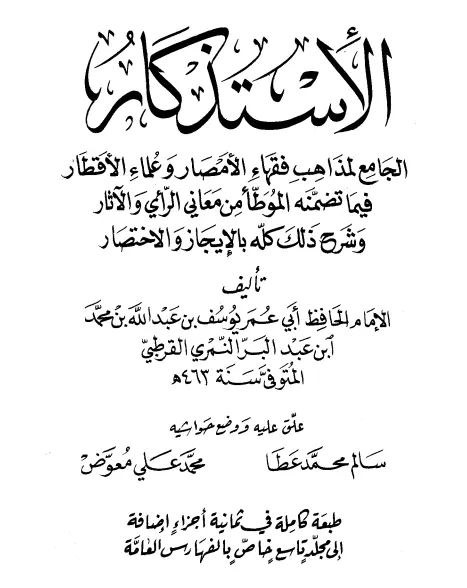 الاستذكار
الجامع لمذاهب فقهاء الأمصار وعلماء الأقطار
فيما تضمنه الموطأ من معاني الرأي والآثار
وشرح ذلك كله بالإيجاز والاختصار
تأليف
الإمام الحافظ أبي عمر يوسف بن عبد الله بن محمد
ابن عبد البر النمري القرطبي
المتوفى سنة ٤٦٣ه
علق عليه ووضع حواشيه
سالم محمد عطا محمد علي معوض
طبعة كاملة في ثمانية أجزاء إضافة
إلى مجلد تاسع خاص بالفهارس العامة